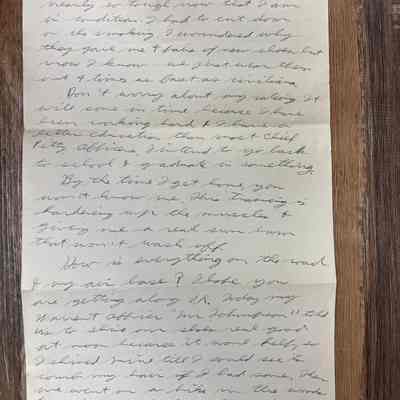 nearly so tough now that I am
in condition. I had to cut down
on the smoking. I wondered why
they gave me 4 pairs of new shoes but
now I know we just wear them
out 4 times as fast as civilians.
Don't worry about my rating. It
will come in time because I have
been working hard & I have a
better education than most Chief
Petty Officers. I intend to go back
to school & graduate in something.
By the time I get home, you
won't know me. This training is
hardening up the muscles &
giving me a real sun burn
that won't wash off.
How is everything on the road
& my air base? I hope you
are getting along O.K. Today my
Warrent Officer "Mr. " told
us to shine our shoes real good
at noon because it wont help, so
I shined mine till I could see to
comb my hair if I had some, then
we went on a hike in the woods